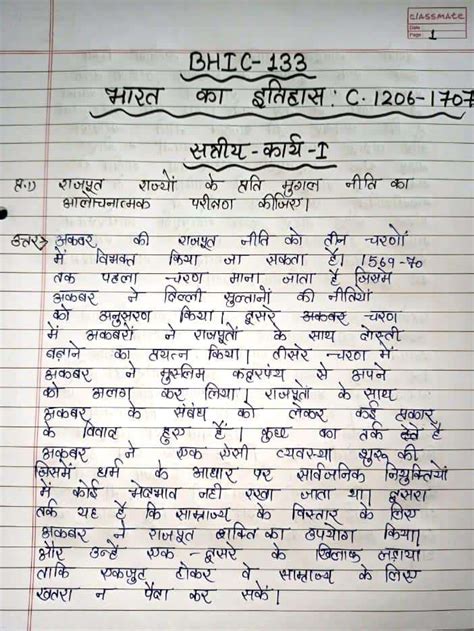 classmate
Date
Page 1
BHIC-133
भारत का इतिहास : C. 1206-1707
सत्रीय-कार्य-I
प्र.1) राजपूत राज्यों के प्रति मुगल नीति का
आलोचनात्मक परीक्षण कीजिए।
उत्तर→ अकबर की राजपूत नीति को तीन चरणों
में विभक्त किया जा सकता है। 1569-70
तक पहला चरण माना जाता है जिसमें
अकबर ने दिल्ली सुल्तानों की नीतियों
को अनुसरण किया। दूसरे अकबर चरण
में अकबरों ने राजपूतों के साथ दोस्ती
बढ़ाने का प्रयत्न किया। तीसरे चरण में
अकबर ने मुस्लिम कट्टरपंथ से अपने
को अलग कर लिया। राजपूतों के साथ
अकबर के संबंध को लेकर कई प्रकार
के विवाद हुए हैं। कुछ का तर्क देते हैं
अकबर ने एक ऐसी व्यवस्था शुरू की
जिसमें धर्म के आधार पर सार्वजनिक नियुक्तियों
में कोई भेदभाव नही रखा जाता था। दूसरा
तर्क यह है कि साम्राज्य के विस्तार के लिए
अकबर ने राजपूत शक्ति का उपयोग किया।
और उन्हे एक-दूसरे के खिलाफ लड़ाया
ताकि एकजुट होकर वे साम्राज्य के लिए
खतरा न पैदा कर सकें।